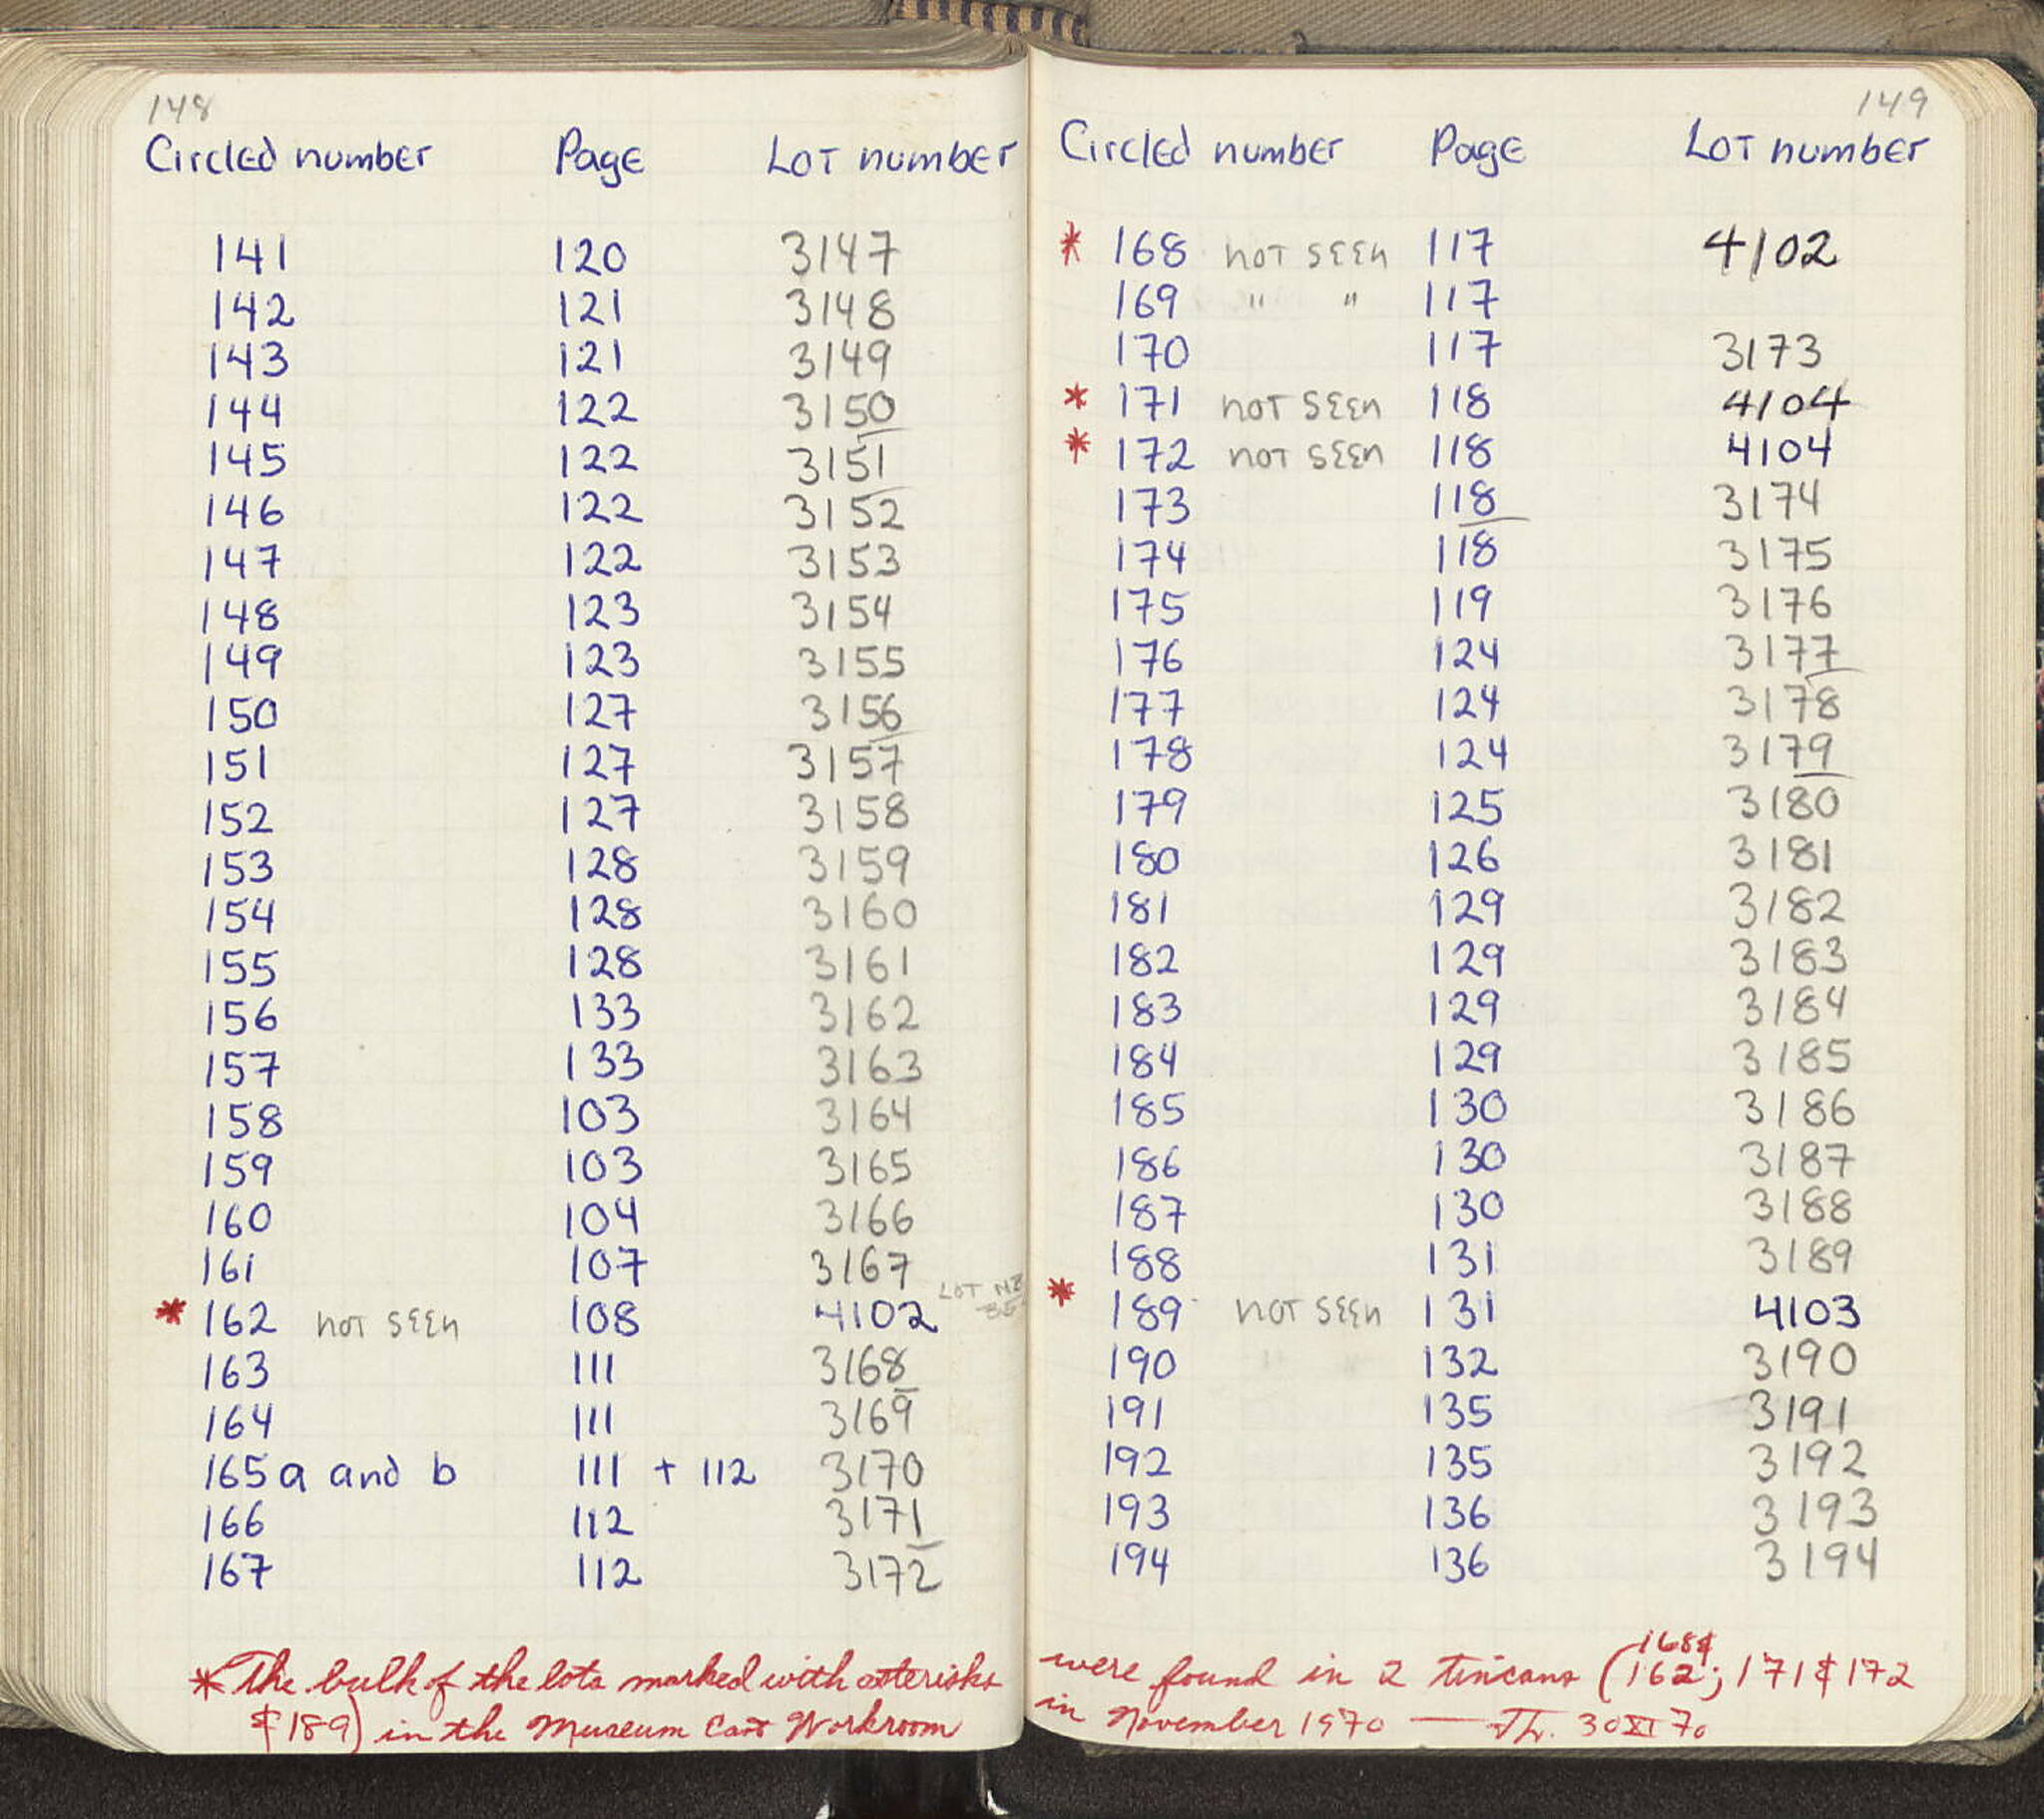 148
Circled number Page Lot number
141 120 3147
142 121 3148
143 121 3149
144 122 3150
145 122 3151
146 122 3152
147 122 3153
148 123 3154
149 123 3155
150 127 3156
151 127 3157
152 127 3158
153 128 3159
154 128 3160
155 128 3161
156 133 3162
157 133 3163
158 103 3164
159 103 3165
160 104 3166
161 107 3167
* 162 not seen 108 4102 LOT
163 111 3168
164 111 3169
165 a and b 111 + 112 3170
166 112 3171
167 112 3172
* The bulk of the lots marked with asterisks
& 189) in the Museum Workroom
149
Circled number Page Lot number
* 168 not seen 117 4102
169 " " 117
170 117 3173
* 171 not seen 118 4104
* 172 not seen 118 4104
173 118 3174
174 118 3175
175 119 3176
176 124 3177
177 124 3178
178 124 3179
179 125 3180
180 126 3181
181 129 3182
182 129 3183
183 129 3184
184 129 3185
185 130 3186
186 130 3187
187 130 3188
188 131 3189
* 189 not seen 131 4103
190 132 3190
191 135 3191
192 135 3192
193 136 3193
194 136 3194
168 &
were found in 2 tincans (162; 171 & 172
in November 1970 — 30 XI 70